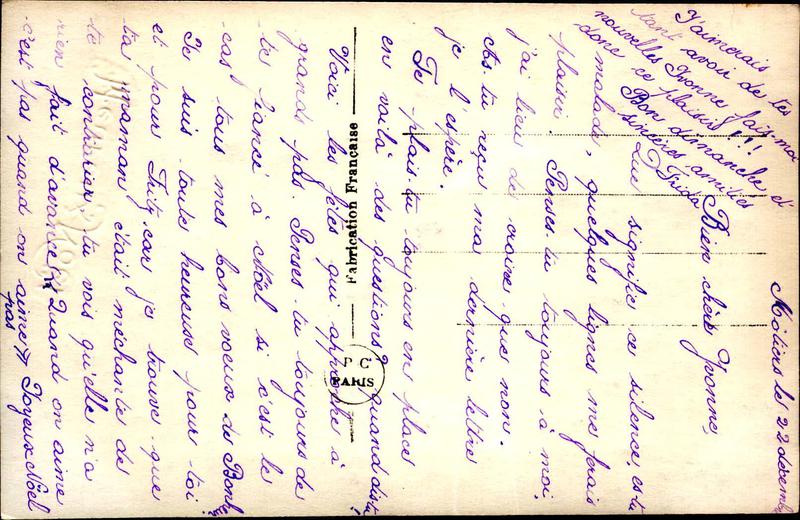 Môtiers le 22 décemb
Bien chère Yvonne,
Que signifie ce silence, es-tu
malade, quelques lignes me ferais
plaisir. Penses tu toujours à moi,
j'ai lieu de croire que non.
As-tu reçu ma dernière lettre
je l'espère.
Te plais-tu toujours en place
en voilà des questions? quand dis-tu
Voici les fêtes qui approche à
grands pas Penses-tu toujours de
te fiancé à Noël si c'est le
cas tous mes bons voeux de Bonh.
Je suis toute heureuse pour toi
et pour Fritz car je trouve que
ta maman était méchante de
te contrarier, tu vois qu'elle n'a
rien fait d'avance Quand on aime
c'est pas quand on aime pas Joyeux Noël
J'aimerais
tant avoir de tes
nouvelles Yvonne fais-moi
donc ce plaisir!!!
Bon dimanche et
sincères amitiés
Frida
Fabrication Française
P C
PARIS